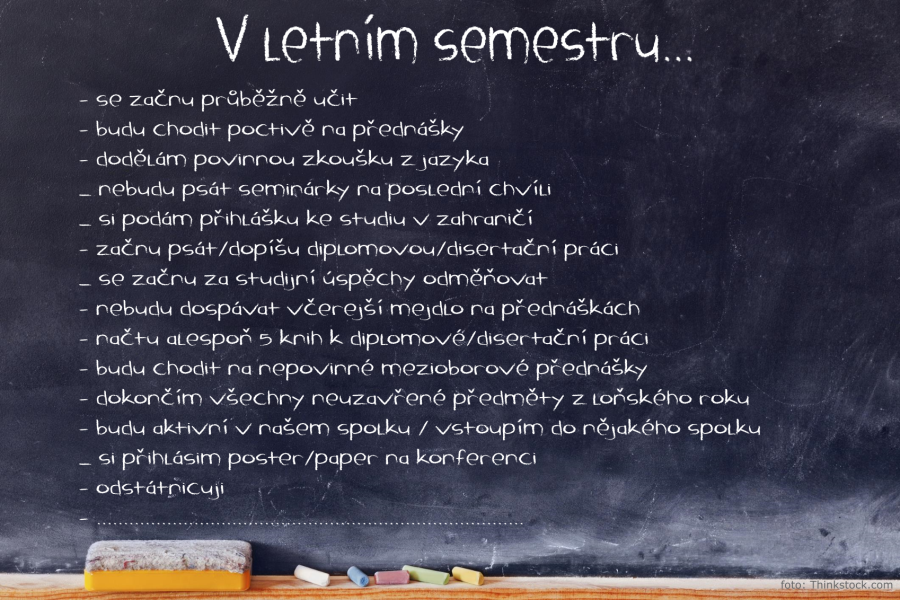 V letním semestru...
- se začnu průběžně učit
- budu chodit poctivě na přednášky
- dodělám povinnou zkoušku z jazyka
_ nebudu psát seminárky na poslední chvíli
_ si podám přihlášku ke studiu v zahraničí
- začnu psát/dopíšu diplomovou/disertační práci
_ se začnu za studijní úspěchy odměňovat
- nebudu dospávat včerejší mejdlo na přednáškách
- načtu alespoň 5 knih k diplomové/disertační práci
- budu chodit na nepovinné mezioborové přednášky
- dokončím všechny neuzavřené předměty z loňského roku
- budu aktivní v našem spolku / vstoupím do nějakého spolku
_ si přihlásim poster/paper na konferenci
- odstátnicuji
- ........................................................................
foto: Thinkstock.com